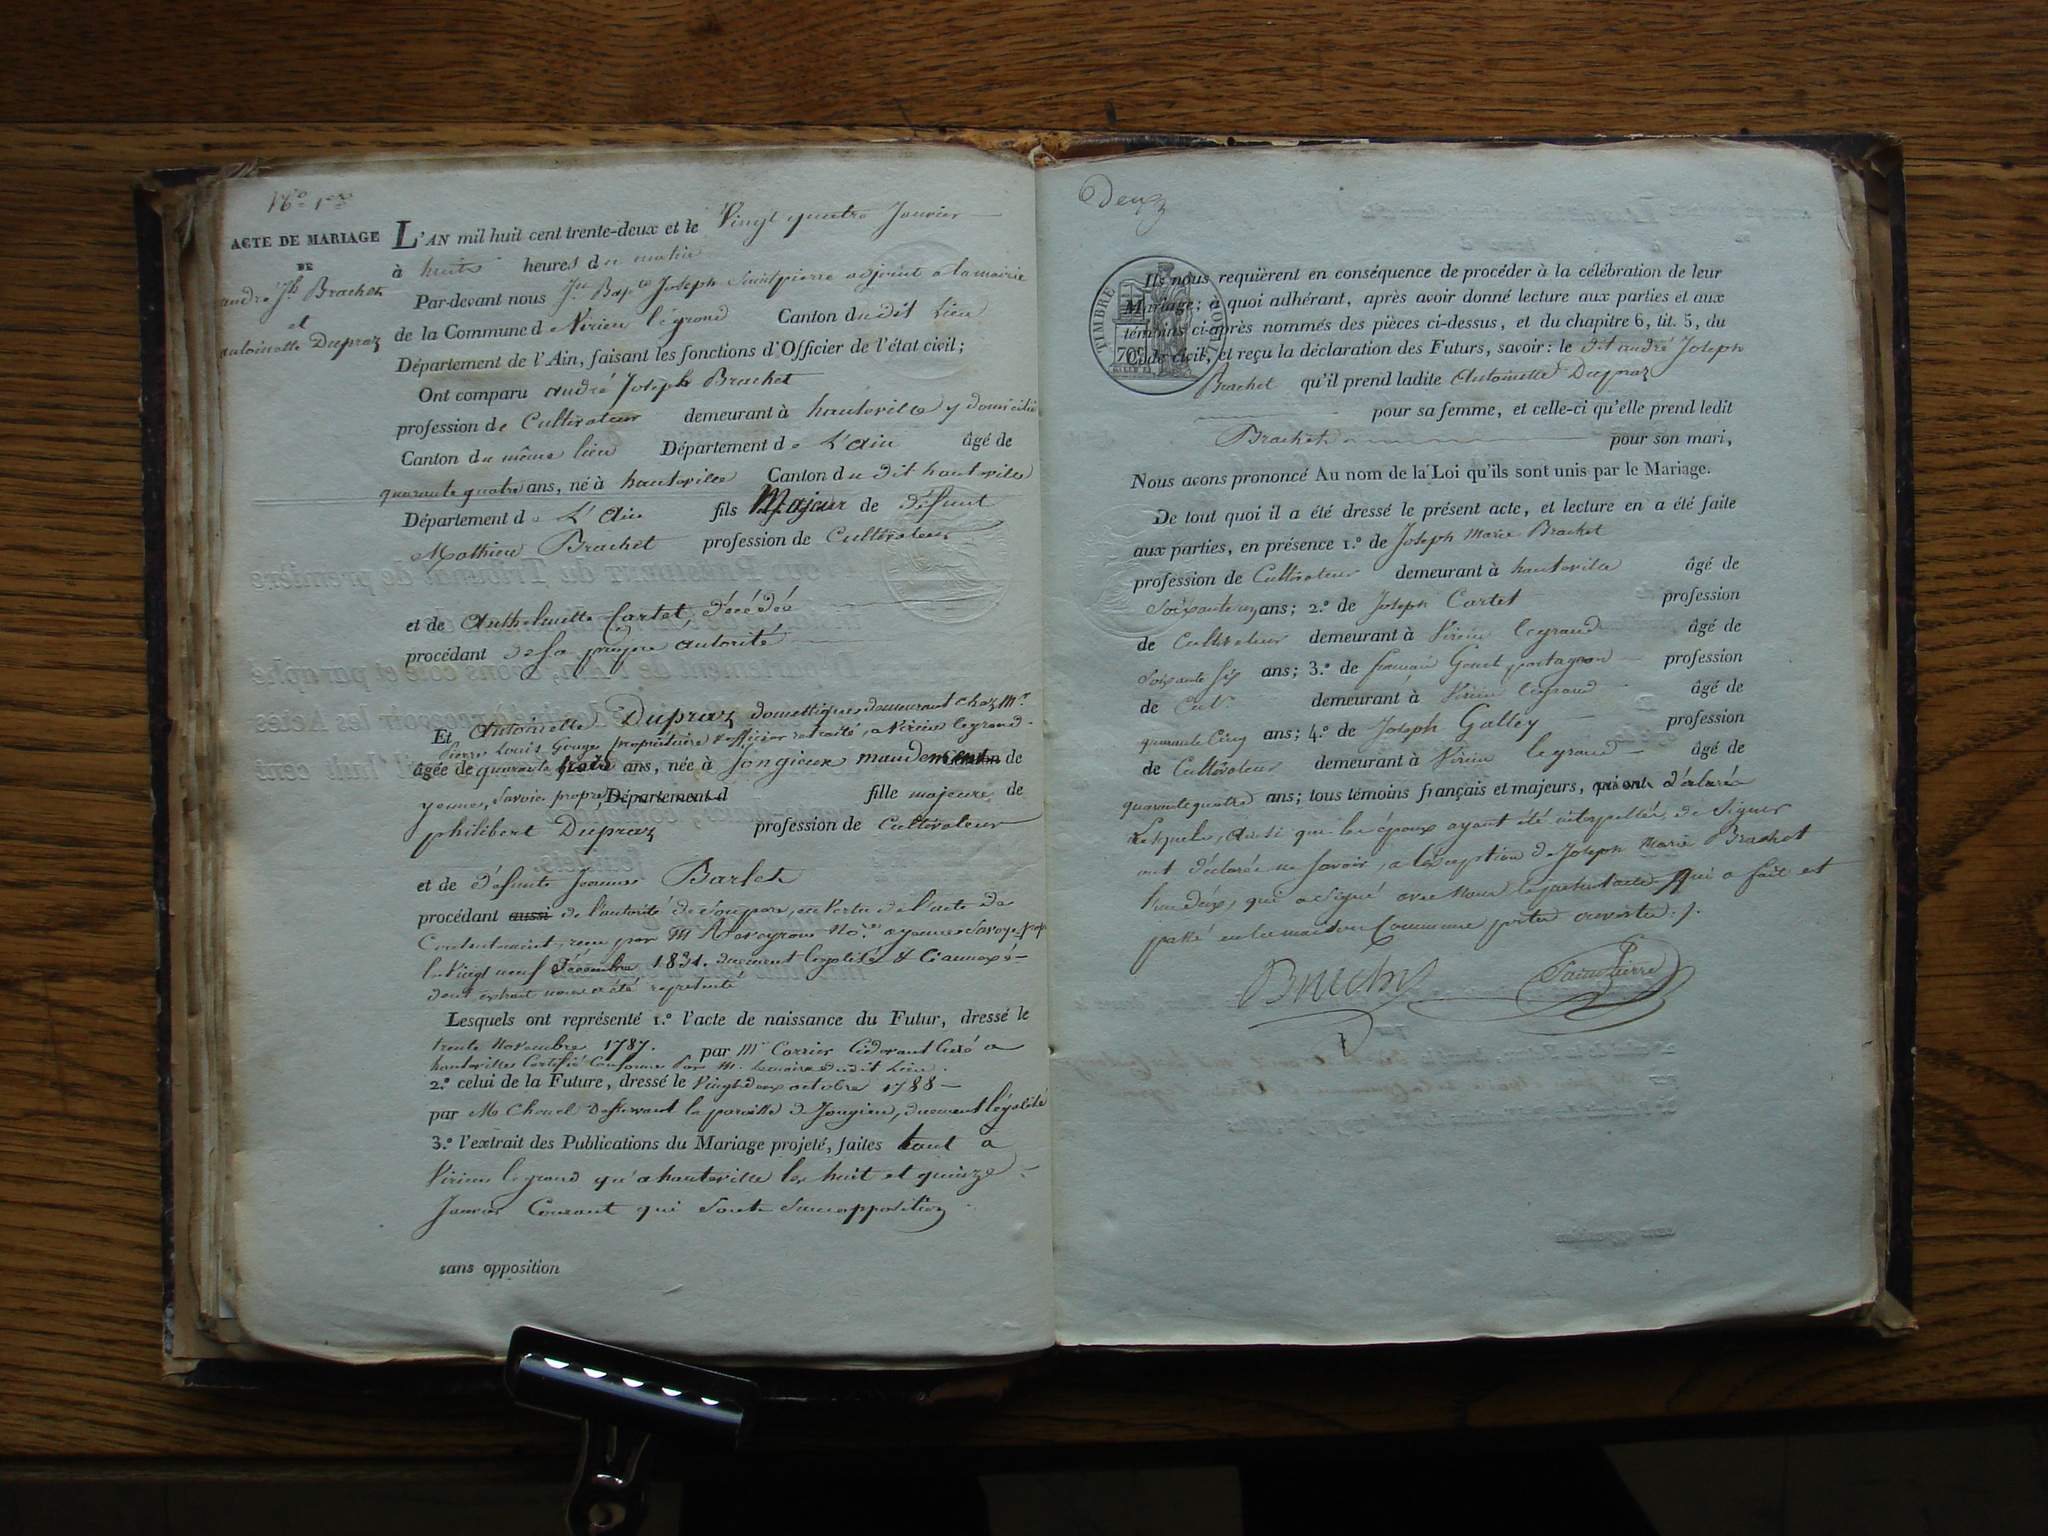 N.o 1er
ACTE DE MARIAGE
DE
andré Jh Brachet
et
antoinette Dupraz
L'AN mil huit cent trente-deux et le Vingt quatre Janvier
à huit heures du matin
Par-devant nous Jn Bapte Joseph Saintpierre adjoint a la mairie
de la Commune d Virieu legrand Canton du dit Lieu
Département de l'Ain, faisant les fonctions d'Officier de l'état civil;
Ont comparu andré Joseph Brachet
profession de Cultivateur demeurant à hauteville y domicilié
Canton du même lieu Département de L'ain âgé de
quarante quatre ans, né à hauteville Canton du dit hauteville
Département de L'ain fils Majeur de défunt
Mathieu Brachet profession de Cultivateur
et de Anthelmette Cartet, décédée
procédant de sa propre autorité
Et Antoinette Dupraz domestique demeurant chez Mr
Pierre Louis propriétaire & officier retraité, a Virieu legrand
âgée de quarante trois ans, née à Jongieux mandement Canton de
yennes, Savoie propre, Département d fille majeure de
philibert Dupraz profession de Cultivateur
et de défunte Jeanne Barlet
procédant aussi de l'autorité de Son père, en Vertu de l'acte de
Consentement, recu par M No.re a yennes Savoye prop
le Vingt neuf Décembre 1831. duement légalisé & Ci annexé
dont extrait nous a été représenté
Lesquels ont représenté 1.o l'acte de naissance du Futur, dressé le
trente Novembre 1787. par Mr Corrier Cidevant Curé a
hauteville Certifié Conforme Par M. Lemaire du dit Lieu.
2.o celui de la Future, dressé le Vingt deux octobre 1788
par M Chouel Desservant la paroisse de Jongieu, duement légalisé
3.o l'extrait des Publications du Mariage projeté, faites tant a
Virieu legrand qu'a hauteville les huit et quinze
Janvier Courant qui Sont Sans opposition
sans opposition
Deux
TIMBRE ROYAL
70c
Ils nous requièrent en conséquence de procéder à la célébration de leur
Mariage; à quoi adhérant, après avoir donné lecture aux parties et aux
témoins ci-après nommés des pièces ci-dessus, et du chapitre 6, tit. 5, du
Code civil, et reçu la déclaration des Futurs, savoir: le dit andré Joseph
Brachet qu'il prend ladite Antoinette Dupraz
pour sa femme, et celle-ci qu'elle prend ledit
Brachet pour son mari,
Nous avons prononcé Au nom de la Loi qu'ils sont unis par le Mariage.
De tout quoi il a été dressé le présent acte, et lecture en a été faite
aux parties, en présence 1.o de Joseph Marie Brachet
profession de Cultivateur demeurant à hauteville âgé de
ans; 2.o de Joseph Cartet profession
de Cultivateur demeurant à Virieu legrand âgé de
Soixante Six ans; 3.o de profession
de Cultr demeurant à Virieu legrand âgé de
quarante Cinq ans; 4.o de Joseph Galley profession
de Cultivateur demeurant à Virieu legrand âgé de
quarante quatre ans; tous témoins français et majeurs, qui ont déclaré
Lesquels, Ainsi que les époux ayant été interpellés de Signer
ont déclaré ne Savoir, a l'exception de Joseph Marie Brachet
l'un d'eux, qui a Signé avec Nous le présent acte qui a fait et
passé en la maison Commune portes ouvertes.
Brachet
Saintpierre